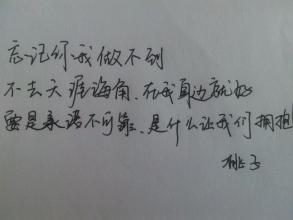 忘记你我做不到
不去天涯海角.在我身边就好
要是永远不可靠.是什么让我们拥抱
桃子